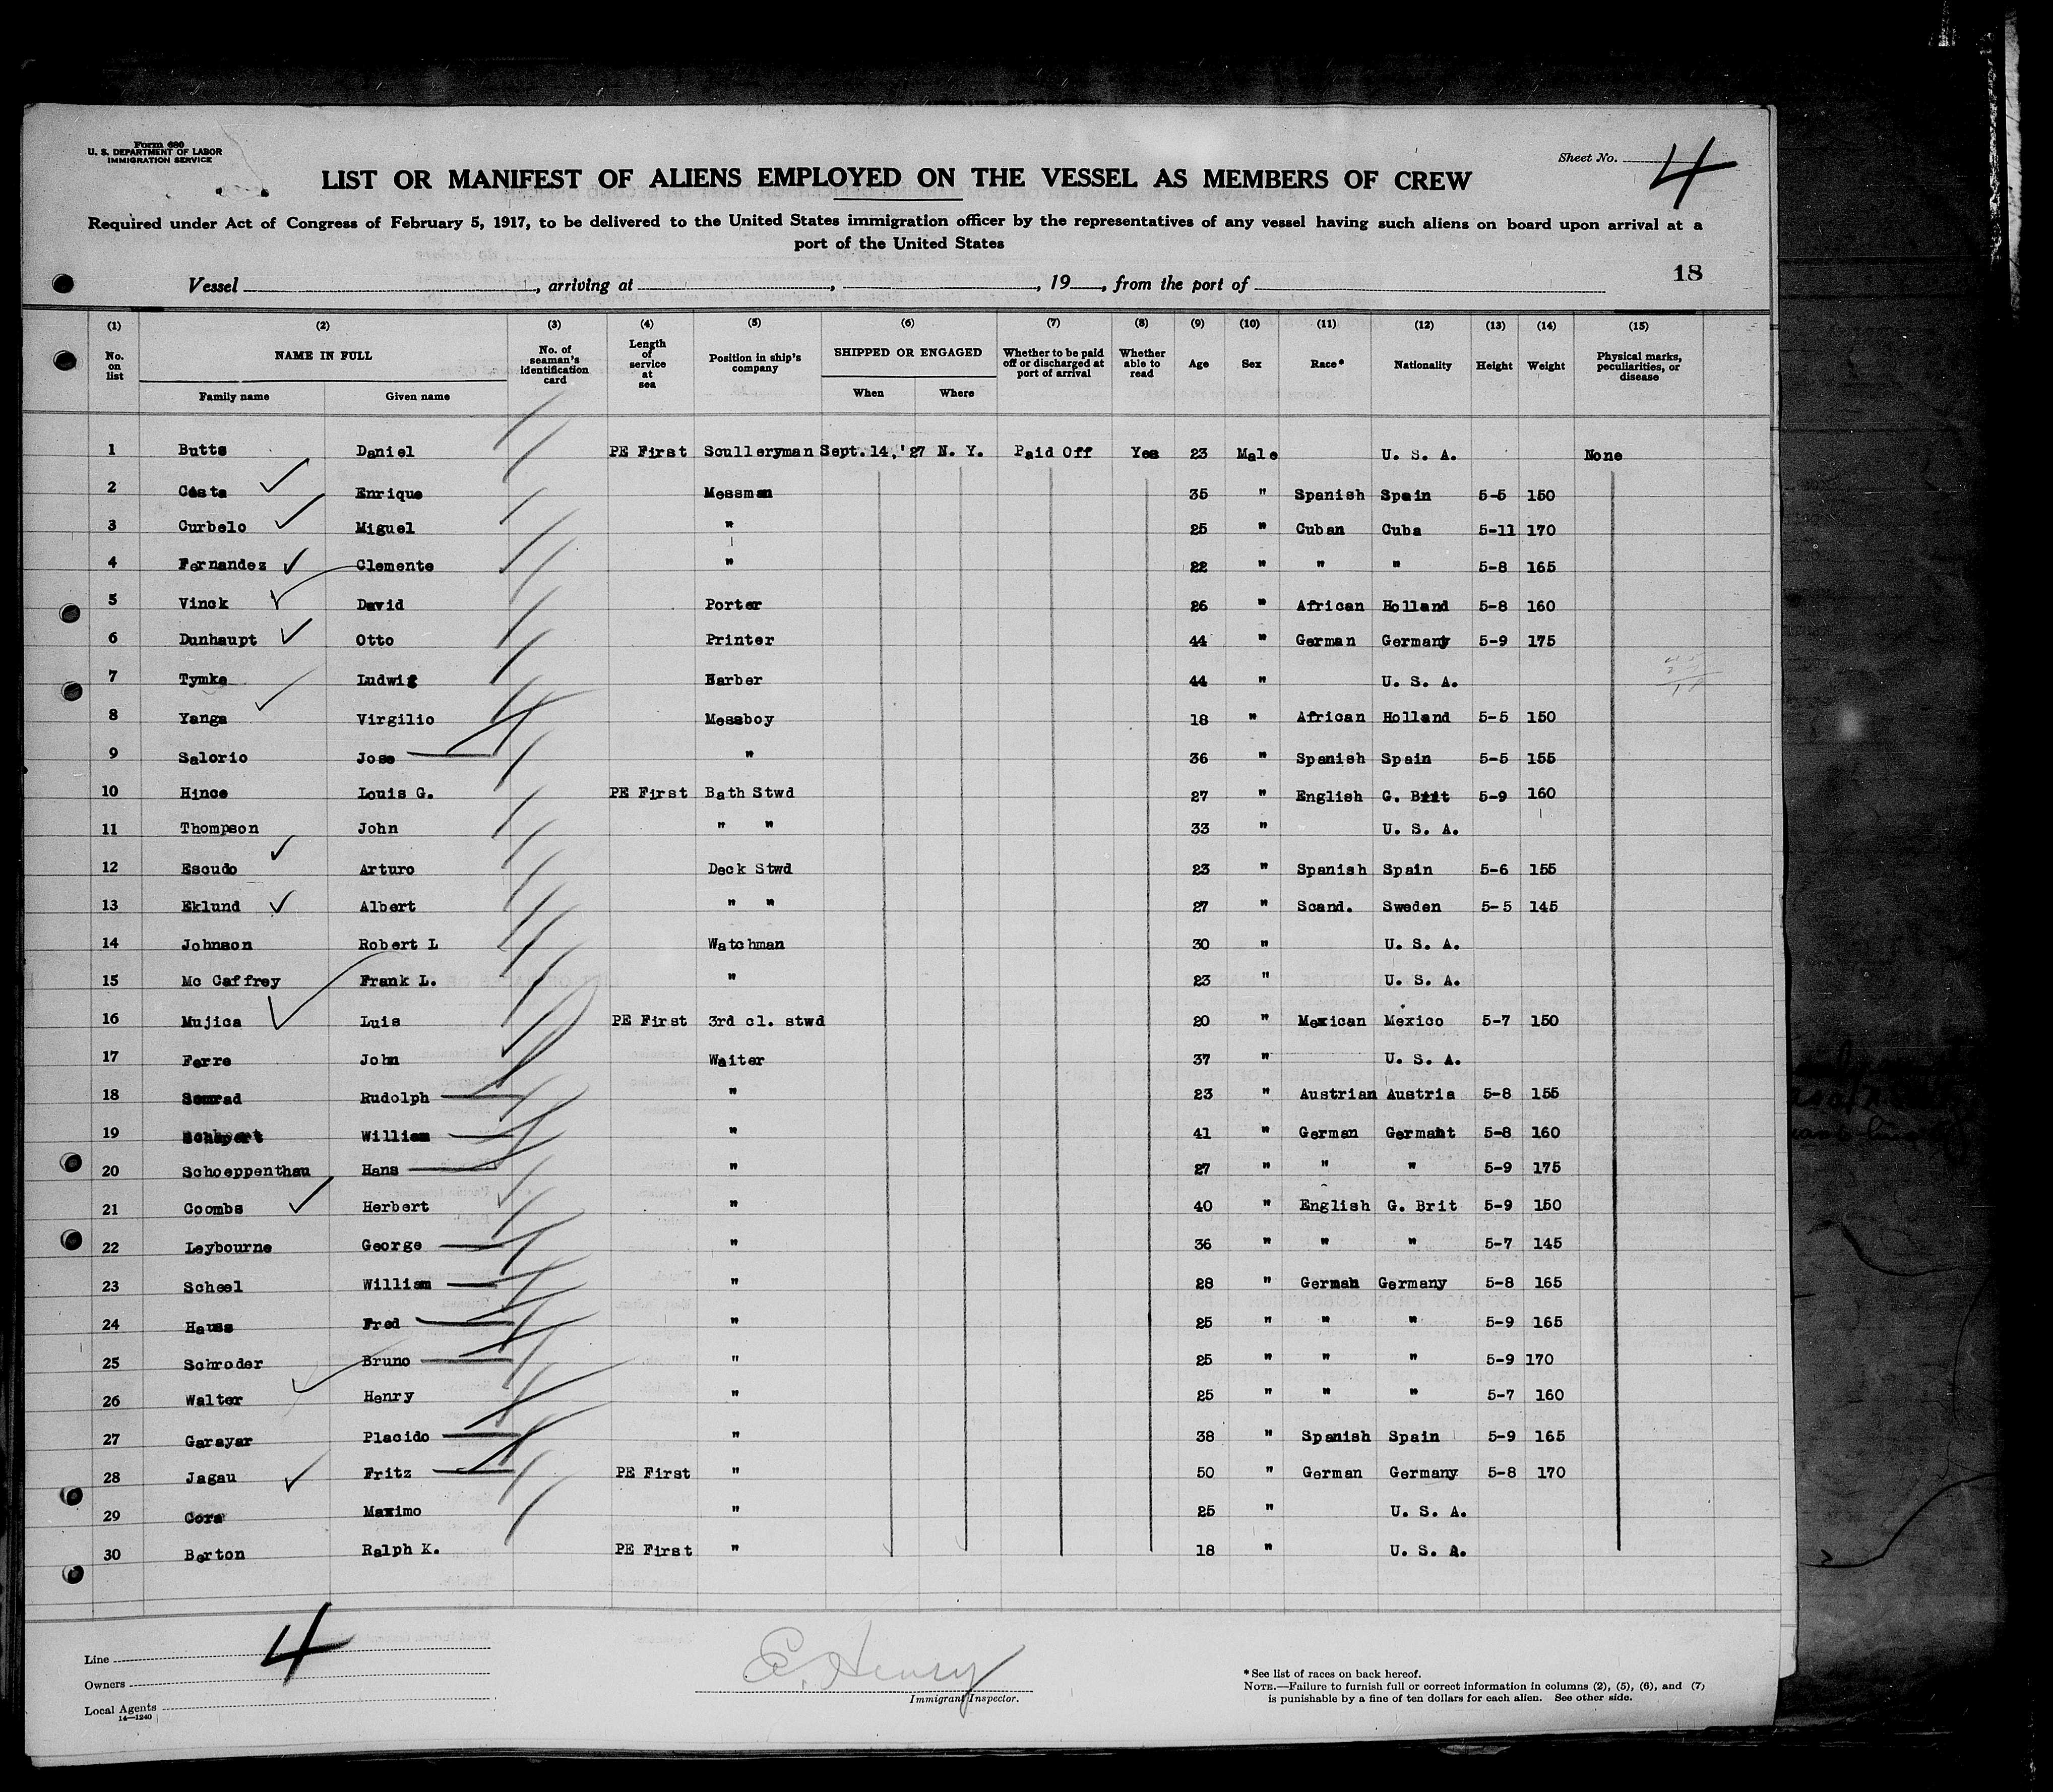 Form 680
U. S. DEPARTMENT OF LABOR
IMMIGRATION SERVICE
Sheet No. 4
LIST OR MANIFEST OF ALIENS EMPLOYED ON THE VESSEL AS MEMBERS OF CREW
Required under Act of Congress of February 5, 1917, to be delivered to the United States immigration officer by the representatives of any vessel having such aliens on board upon arrival at a
port of the United States
18
Vessel , arriving at , , 19 , from the port of
(1) (2) (3) (4) (5) (6) (7) (8) (9) (10) (11) (12) (13) (14) (15)
No. on list NAME IN FULL Family name Given name No. of seaman's identification card Length of service at sea Position in ship's company SHIPPED OR ENGAGED When Where Whether to be paid off or discharged at port of arrival Whether able to read Age Sex Race* Nationality Height Weight Physical marks, peculiarities, or disease
1 Butts Daniel PE First Sculleryman Sept. 14, '27 N. Y. Paid Off Yes 23 Male U. S. A. None
2 Costa Enrique Messman 35 " Spanish Spain 5-5 150
3 Curbelo Miguel " 25 " Cuban Cuba 5-11 170
4 Fernandez Clemente " 22 " " " 5-8 165
5 Vinck David Porter 26 " African Holland 5-8 160
6 Dunhaupt Otto Printer 44 " German Germany 5-9 175
7 Tymke Ludwig Barber 44 " U. S. A.
8 Yanga Virgilio Messboy 18 " African Holland 5-5 150
9 Salorio Jose " 36 " Spanish Spain 5-5 155
10 Hince Louis G. PE First Bath Stwd 27 " English G. Brit 5-9 160
11 Thompson John " " 33 " U. S. A.
12 Escudo Arturo Deck Stwd 23 " Spanish Spain 5-6 155
13 Eklund Albert " " 27 " Scand. Sweden 5-5 145
14 Johnson Robert L Watchman 30 " U. S. A.
15 Mc Caffrey Frank L. " 23 " U. S. A.
16 Mujica Luis PE First 3rd cl. stwd 20 " Mexican Mexico 5-7 150
17 Ferre John Waiter 37 " U. S. A.
18 Semrad Rudolph " 23 " Austrian Austria 5-8 155
19 William " 41 " German Germant 5-8 160
20 Schoeppenthau Hans " 27 " " " 5-9 175
21 Coombs Herbert " 40 " English G. Brit 5-9 150
22 Leybourne George " 36 " " " 5-7 145
23 Scheel William " 28 " German Germany 5-8 165
24 Hauss Fred " 25 " " " 5-9 165
25 Schroder Bruno " 25 " " " 5-9 170
26 Walter Henry " 25 " " " 5-7 160
27 Garayar Placido " 38 " Spanish Spain 5-9 165
28 Jagau Fritz PE First " 50 " German Germany 5-8 170
29 Cora Maximo " 25 " U. S. A.
30 Berton Ralph K. PE First " 18 " U. S. A.
4
Line
Owners
Local Agents
14—1240
E. Henry
Immigrant Inspector.
* See list of races on back hereof.
NOTE.—Failure to furnish full or correct information in columns (2), (5), (6), and (7)
is punishable by a fine of ten dollars for each alien. See other side.